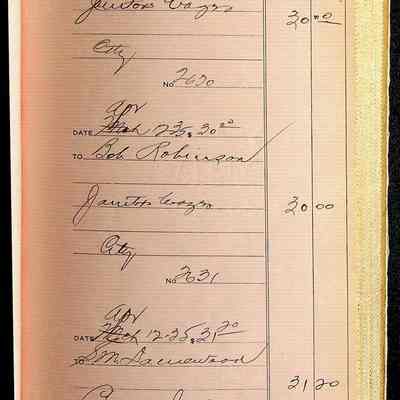 Janitors Wages 30 00
City
No 2630
Apr
DATE March 12-35 $ 30 00
TO Bob Robinson
Janitors Wages 30 00
City
No 2631
Apr
DATE March 12-35 $ 31 20
TO S M
31 20